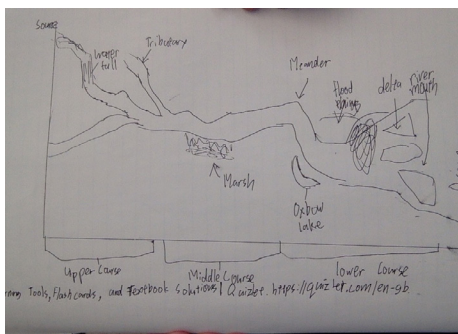 Source
water
fall
Tributary
Meander
flood
plains
delta
river
mouth
Marsh
Oxbow
lake
Upper Course
Middle Course
lower Course
Tools, Flashcards, and Textbook Solutions | Quizlet. https://quizlet.com/en-gb.